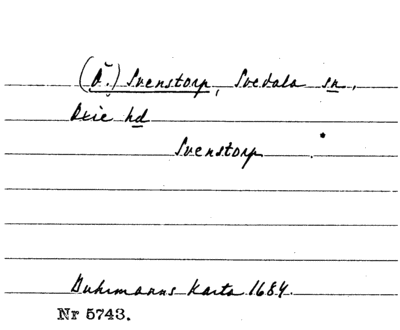 (Ö.) Svenstorp, Svedala sn,
Oxie hd
Svenstorp
Buhrmanns karta 1684.
Nr 5743.